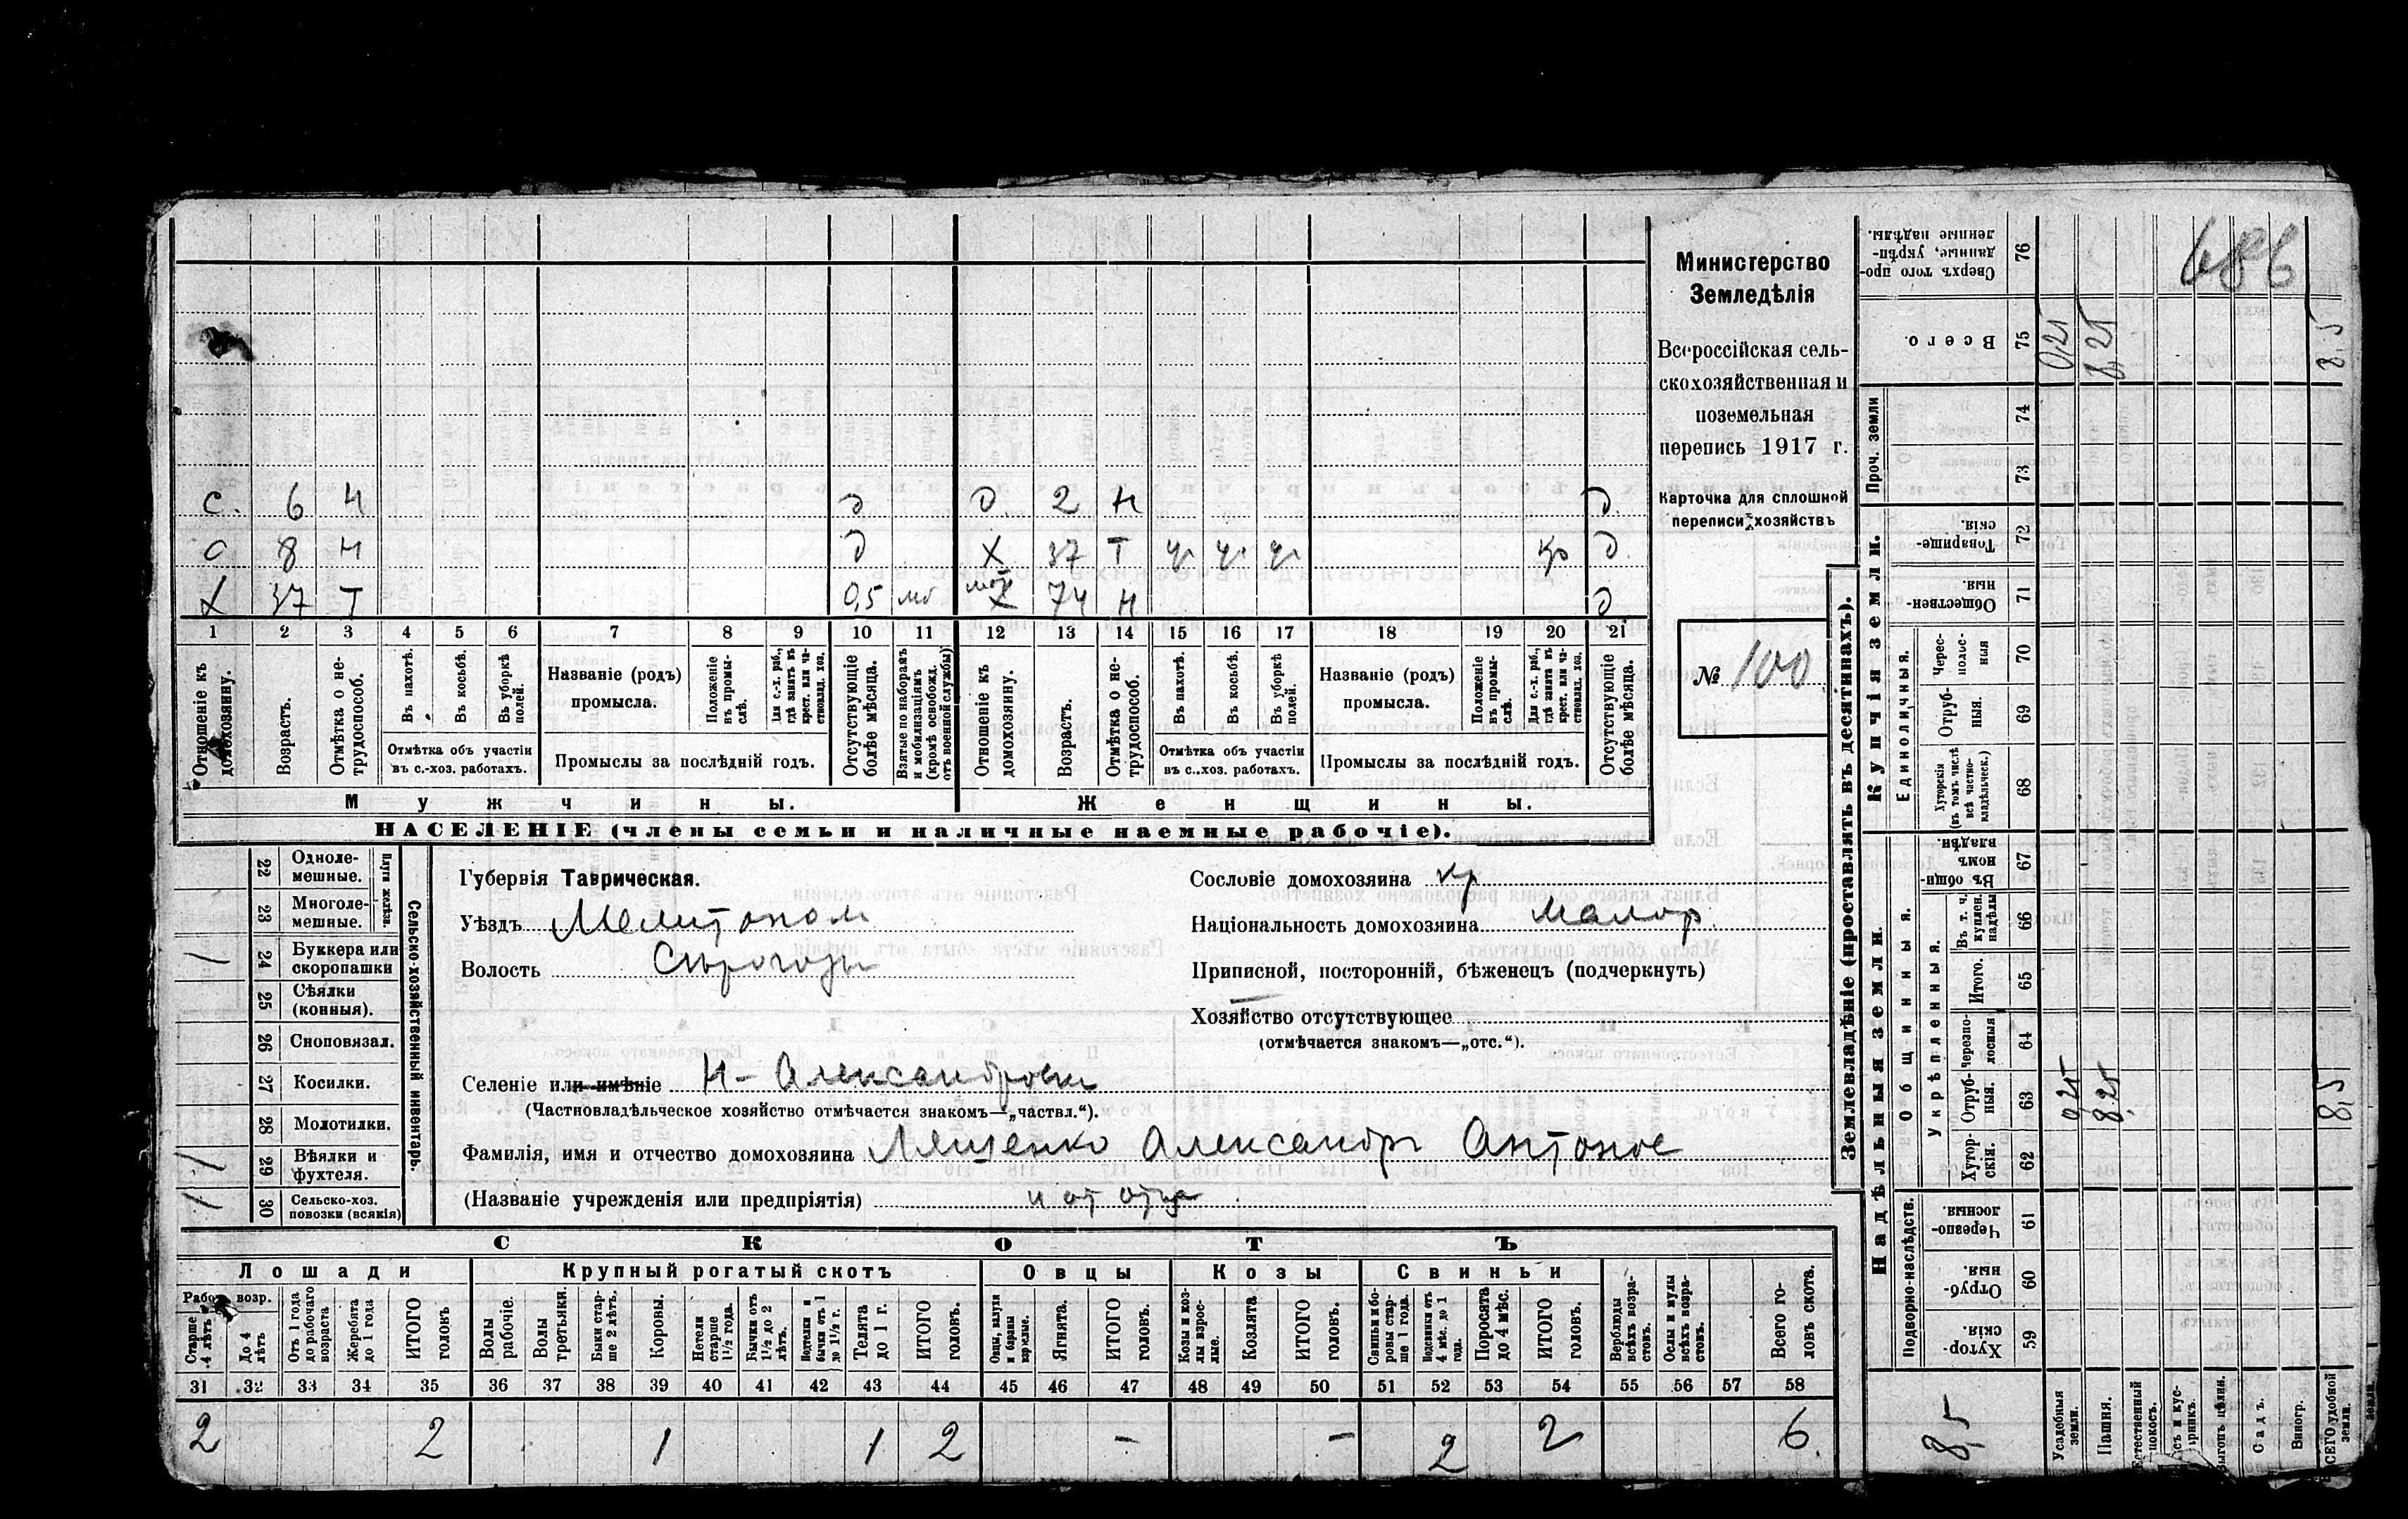 Министерство
Земледѣлія
Всероссійская сель-
скохозяйственная и
поземельная
перепись 1917 г.
Карточка для сплошной
переписи хозяйствъ
№ 100
686
с. 6 н д д 2 н д
с 8 н д х 37 т ч. ч. ч. кр д.
х 37 т 0,5 мб мат 74 н д
1 2 3 4 5 6 7 8 9 10 11 12 13 14 15 16 17 18 19 20 21
Отношеніе къ домохозяину.
Возрастъ.
Отмѣтка о не-трудоспособ.
Въ пахотѣ.
Въ косьбѣ.
Въ уборкѣ полей.
Отмѣтка объ участіи
въ с.-хоз. работахъ.
Названіе (родъ)
промысла.
Положеніе въ промы-слѣ.
Для с.-х. раб., гдѣ занятъ въ крест. или ча-стновлад. хоз.
Промыслы за послѣдній годъ.
Отсутствующіе болѣе мѣсяца.
Взятые по наборамъ и мобилизаціямъ (кромѣ освобожд. отъ военной службы)
Отношеніе къ домохозяину.
Возрастъ.
Отмѣтка о не-трудоспособ.
Въ пахотѣ.
Въ косьбѣ.
Въ уборкѣ полей.
Отмѣтка объ участіи
въ с..хоз. работахъ.
Названіе (родъ)
промысла.
Положеніе въ промы-слѣ.
Для с.-х. раб., гдѣ занята въ крест. или ча-стновлад. хоз.
Промыслы за послѣдній годъ.
Отсутствующіе болѣе мѣсяца.
Мужчины. Женщины.
НАСЕЛЕНІЕ (члены семьи и наличные наемные рабочіе).
Сельско-хозяйственный инвентарь.
Плуги желѣзн.
22 Одноле-мешные.
23 Многоле-мешные.
24 Буккера или скоропашки 1
25 Сѣялки (конныя).
26 Сноповязал.
27 Косилки.
28 Молотилки.
29 Вѣялки и фухтеля. 1
30 Сельско-хоз. повозки (всякія) 1
Губернія Таврическая.
Уѣздъ Мелитопол
Волость Сѣрогозы
Селеніе или имѣніе Н-Александровка
(Частновладѣльческое хозяйство отмѣчается знакомъ—„частвл.“).
Фамилія, имя и отчество домохозяина Лященко Александръ Антонов
(Названіе учрежденія или предпріятія) и от отца
Сословіе домохозяина кр
Національность домохозяина малор.
Приписной, посторонній, бѣженецъ (подчеркнуть)
Хозяйство отсутствующее
(отмѣчается знакомъ—„отс.“).
СКОТЪ
Лошади Крупный рогатый скотъ Овцы Козы Свиньи
Рабо возр.
Старше 4 лѣтъ
До 4 лѣтъ
Отъ 1 года до рабочаго возраста
Жеребята до 1 года
ИТОГО головъ
Волы рабочіе.
Волы третьяки.
Быки стар-ше 2 лѣтъ.
Коровы.
Нетели старше 1½ года.
Бычки отъ 1½ до 2 лѣтъ.
Подтелки и бычки отъ 1 до 1½ г.
Телята до 1 г.
ИТОГО головъ.
Овцы, валухи и бараны взрослые.
Ягнята.
ИТОГО головъ.
Козы и коз-лы взрос-лые.
Козлята
ИТОГО головъ.
Свиньи и бо-ровы стар-ше 1 года.
Подсвинки отъ 4 мѣс. до 1 года.
Поросята до 4 мѣс.
ИТОГО головъ.
Верблюды всѣхъ возра-стовъ.
Ослы и мулы всѣхъ возра-стовъ.
Всего го-ловъ скота.
31 32 33 34 35 36 37 38 39 40 41 42 43 44 45 46 47 48 49 50 51 52 53 54 55 56 57 58
2 2 1 1 2 – – 2 2 6.
Землевладѣніе (проставлять въ десятинахъ).
Надѣльныя земли.
Купчія земли.
Проч. земли
Подворно-наслѣдств.
Общинныя.
Укрѣпленныя.
Единоличныя.
59 Хутор-скія.
60 Отруб-ныя.
61 Черезпо-лосныя.
62 Хутор-скія.
63 Отруб-ныя. 0,25 8,25 8,5
64 Черезпо-лосныя
65 Итого.
66 Въ т. ч. куплен. надѣлы
67 Въ общи-номъ владѣн.
68 Хуторскія (въ томъ числѣ всѣ частно-владѣльческ.)
69 Отруб-ныя.
70 Черес-полос-ныя
71 Обществен-ныя.
72 Товарище-скія.
73
74
75 Всего. 0,25 8,25 8,5
76 Сверхъ того про-данные, укрѣп-ленные надѣлы.
8,5
Усадебныя земли.
Пашня.
Естественный покосъ.
Выгонъ цѣлин.
Садъ.
Виногр.
ВСЕГО удобной земли.